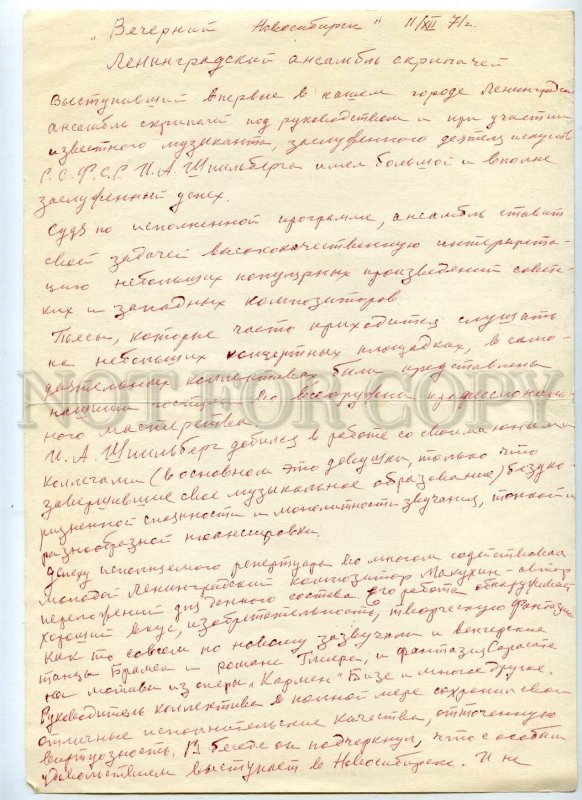 „Вечерний Новосибирск" 11/XII 71г.
Ленинградский ансамбль скрипачей
Выступивший впервые в нашем городе Ленинградский
ансамбль скрипачей под руководством и при участии
известного музыканта, заслуженного деятеля искусств
Р.С.Ф.С.Р И.А Шпильберга имел большой и вполне
заслуженный успех.
Судя по исполненной программе, ансамбль ставит
своей задачей высококачественную интерпрета-
цию небольших популярных произведений совет-
ких и западных композиторов.
Пьесы, которые часто приходится слушать
на небольших концертных площадках, в само-
деятельных коллективах были представлены
нашими гостями во всеоружии профессиональ-
ного мастерства.
И.А. Шпильберг добился в работе со своими юными
коллегами (в основном это девушки, только что
завершившие свое музыкальное образование) безуко-
ризненной слаженности и монолитности звучания, тонкой и
разнообразной нюансировки.
Успеху исполняемого репертуара во многом содействовал
молодой Ленинградский композитор Макухин - автор
переложений для данного состава. Его работа обнаруживает
хороший вкус, изобретательность, творческую фантазию
Как то совсем по новому зазвучали и венгерские
танцы Брамса и романс Глиера, и фантазия Сарасате
на мотивы из оперы „Кармен" Бизе и многое другое.
Руководитель коллектива в полной мере сохранил свои
отличные исполнительские качества, отточенную
виртуозность. В беседе он подчеркнул, что с особым
удовольствием выступает в Новосибирске. И не
NOT FOR COPY